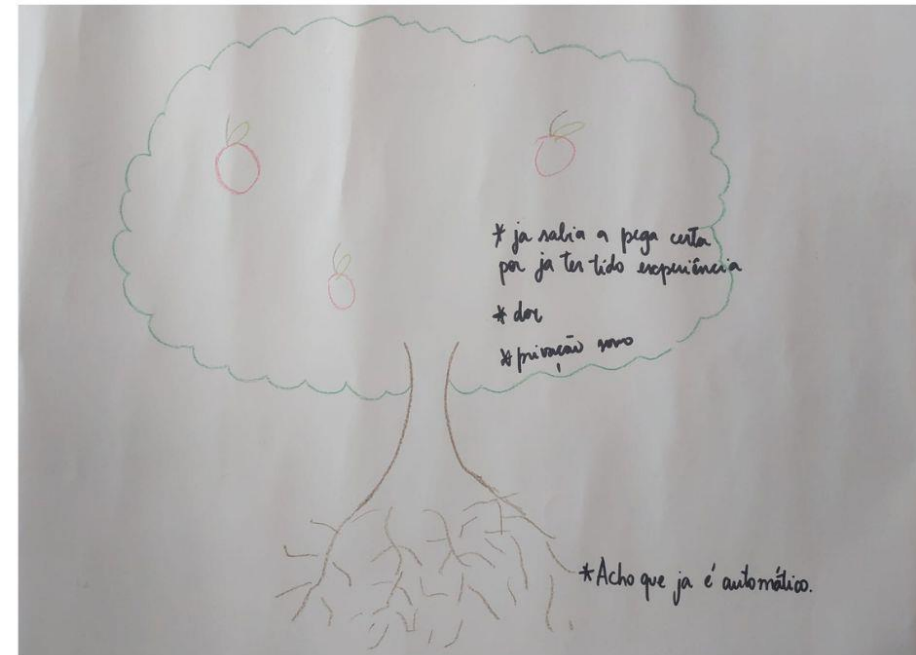 * ja sabia a pega certa
por ja ter tido experiência
* dor
* privação sono
* Acho que ja é automático.